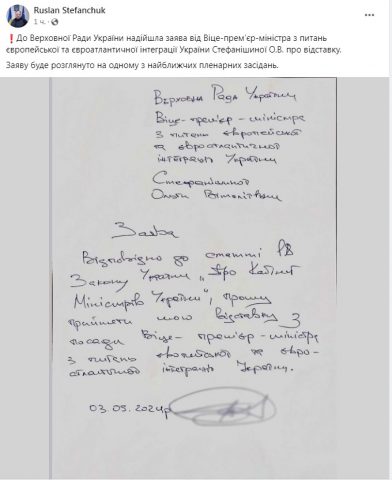 Ruslan Stefanchuk
1 ч. ·
❗До Верховної Ради України надійшла заява від Віце-прем'єр-міністра з питань
європейської та євроатлантичної інтеграції України Стефанішиної О.В. про відставку.
Заяву буде розглянуто на одному з найближчих пленарних засідань.
Верховна Рада України
Віце-прем'єр-міністра
з питань європейської
та євроатлантичної
інтеграції України
Стефанішиної
Ольги Віталіївни
Заява
Відповідно до статті 18
Закону України „Про Кабінет
Міністрів України", прошу
прийняти мою відставку з
посади Віце-прем'єр-міністра
з питань європейської та євро-
атлантичної інтеграції України.
03.09.2024р